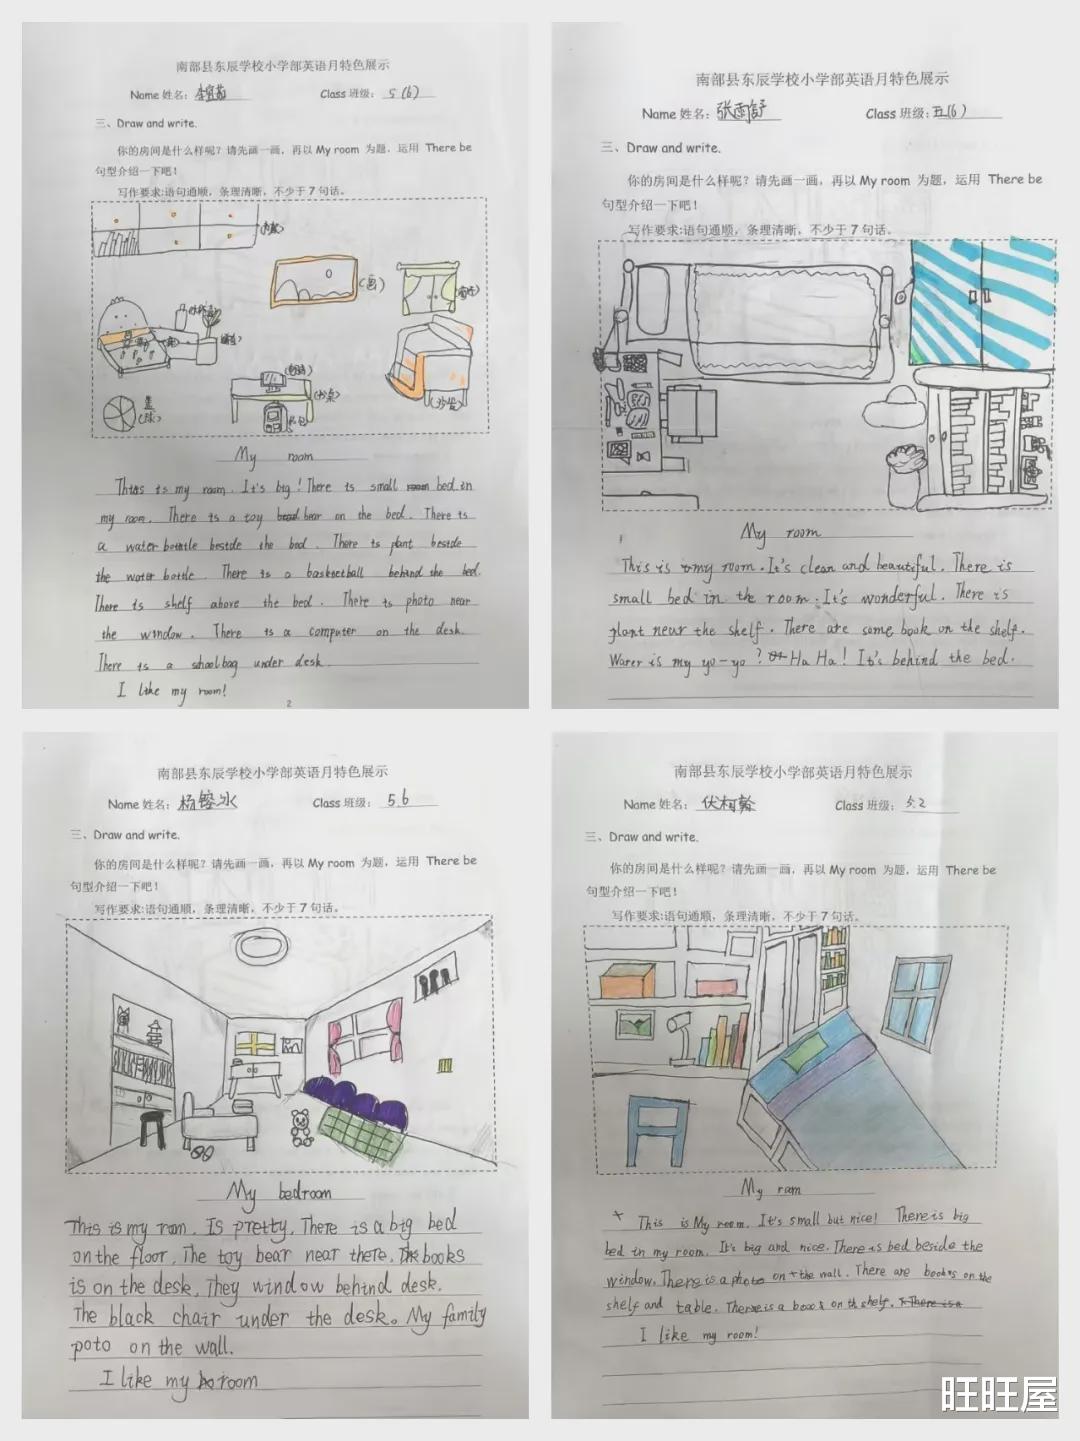 南部县东辰学校小学部英语月特色展示
Name 姓名: Class 班级: 5(6)
三、Draw and write.
你的房间是什么样呢？请先画一画，再以 My room 为题，运用 There be
句型介绍一下吧！
写作要求:语句通顺，条理清晰，不少于 7 句话。
(画)
(书桌)
(沙发)
My room
This is my room. It's big! There is small room bed in
my room. There is a toy bead bear on the bed. There is
a water bottle beside the bed. There is plant beside
the water bottle. There is a basketball behind the bed.
There is shelf above the bed. There is photo near
the window. There is a computer on the desk.
There is a shoolbag under desk.
I like my room!
2
南部县东辰学校小学部英语月特色展示
Name 姓名: 张雨舒 Class 班级: 五(6)
三、Draw and write.
你的房间是什么样呢？请先画一画，再以 My room 为题，运用 There be
句型介绍一下吧！
写作要求:语句通顺，条理清晰，不少于 7 句话。
My room
This is my room. It's clean and beautiful. There is
small bed in the room. It's wonderful. There is
plant near the shelf. There are some book on the shelf.
Warer is my yo-yo? Ha Ha! It's behind the bed.
南部县东辰学校小学部英语月特色展示
Name 姓名: 杨镕冰 Class 班级: 5.6
三、Draw and write.
你的房间是什么样呢？请先画一画，再以 My room 为题，运用 There be
句型介绍一下吧！
写作要求:语句通顺，条理清晰，不少于 7 句话。
My bedroom
This is my room. Is pretty. There is a big bed
on the floor. The toy bear near there. The books
is on the desk. They window behind desk.
The black chair under the desk. My family
poto on the wall.
I like my room
南部县东辰学校小学部英语月特色展示
Name 姓名: 伏柯翰 Class 班级: 5.2
三、Draw and write.
你的房间是什么样呢？请先画一画，再以 My room 为题，运用 There be
句型介绍一下吧！
写作要求:语句通顺，条理清晰，不少于 7 句话。
My ram
This is My room. It's small but nice! There is big
bed in my room. It's big and nice. There is bed beside the
window. There is a photo on the wall. There are books on the
shelf and table. There is a boos on th shelf. There is a
I like my room!
旺旺屋